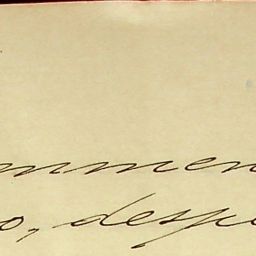 mmen
o, desp